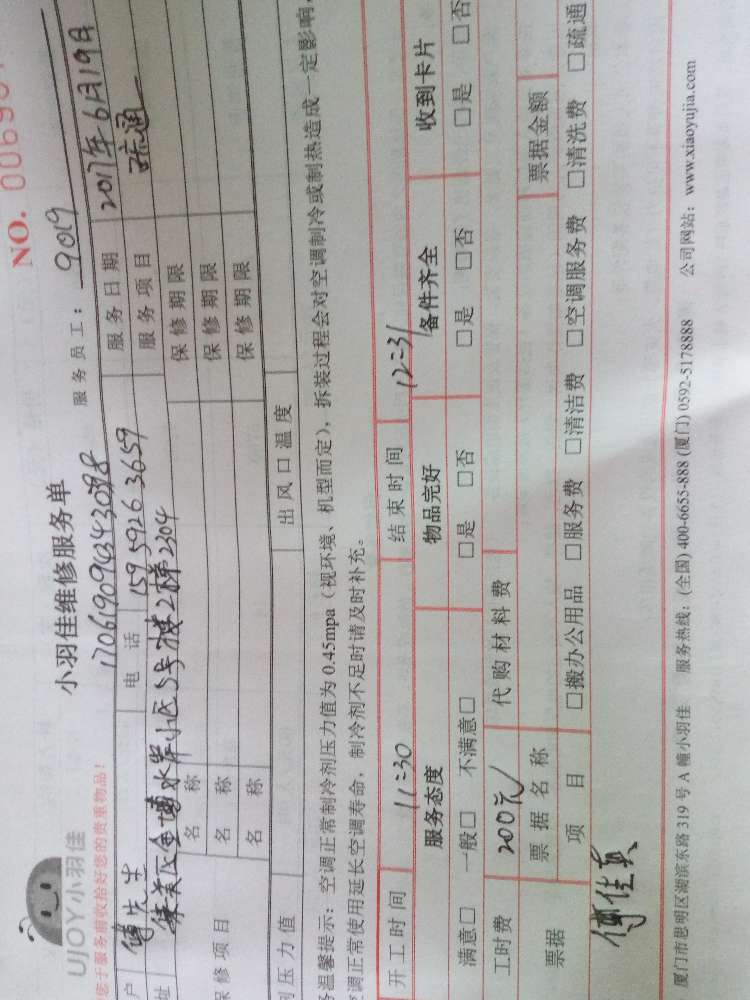 NO. 00690
UJOY小羽佳
小羽佳维修服务单
服务员工：9019
您于服务前收拾好您的贵重物品！
户 傅先生 电话 159 5926 3659 服务日期 2017年6月19日
址 集美区金博水岸小区5号楼2梯2304 服务项目 疏通
保修项目 名称 保修期限
名称 保修期限
名称 保修期限
压力值 出风口温度
务温馨提示：空调正常制冷剂压力值为 0.45mpa（视环境、机型而定），拆装过程会对空调制冷或制热造成一定影响，
空调正常使用延长空调寿命，制冷剂不足时请及时补充。
开工时间 11:30 结束时间 12:31
服务态度 物品完好 备件齐全 收到卡片
满意□ 一般□ 不满意□ □是 □否 □是 □否 □是 □否
工时费 200元 代购材料费
票据 票据名称 票据金额
项目 □搬办公用品 □服务费 □清洁费 □空调服务费 □清洗费 □疏通
傅佳真
厦门市思明区湖滨东路 319 号 A 幢小羽佳 服务热线：(全国) 400-6655-888 (厦门) 0592-5178888 公司网站：www.xiaoyujia.com